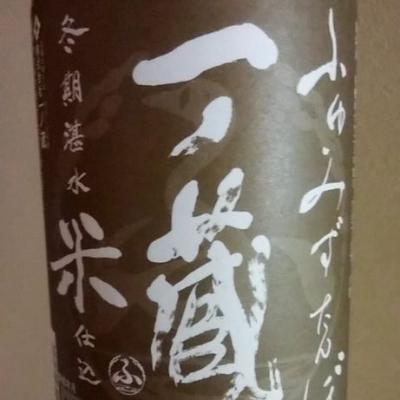 ふゆみずたんぼ
一ノ蔵
冬期湛水
米仕込
ふ